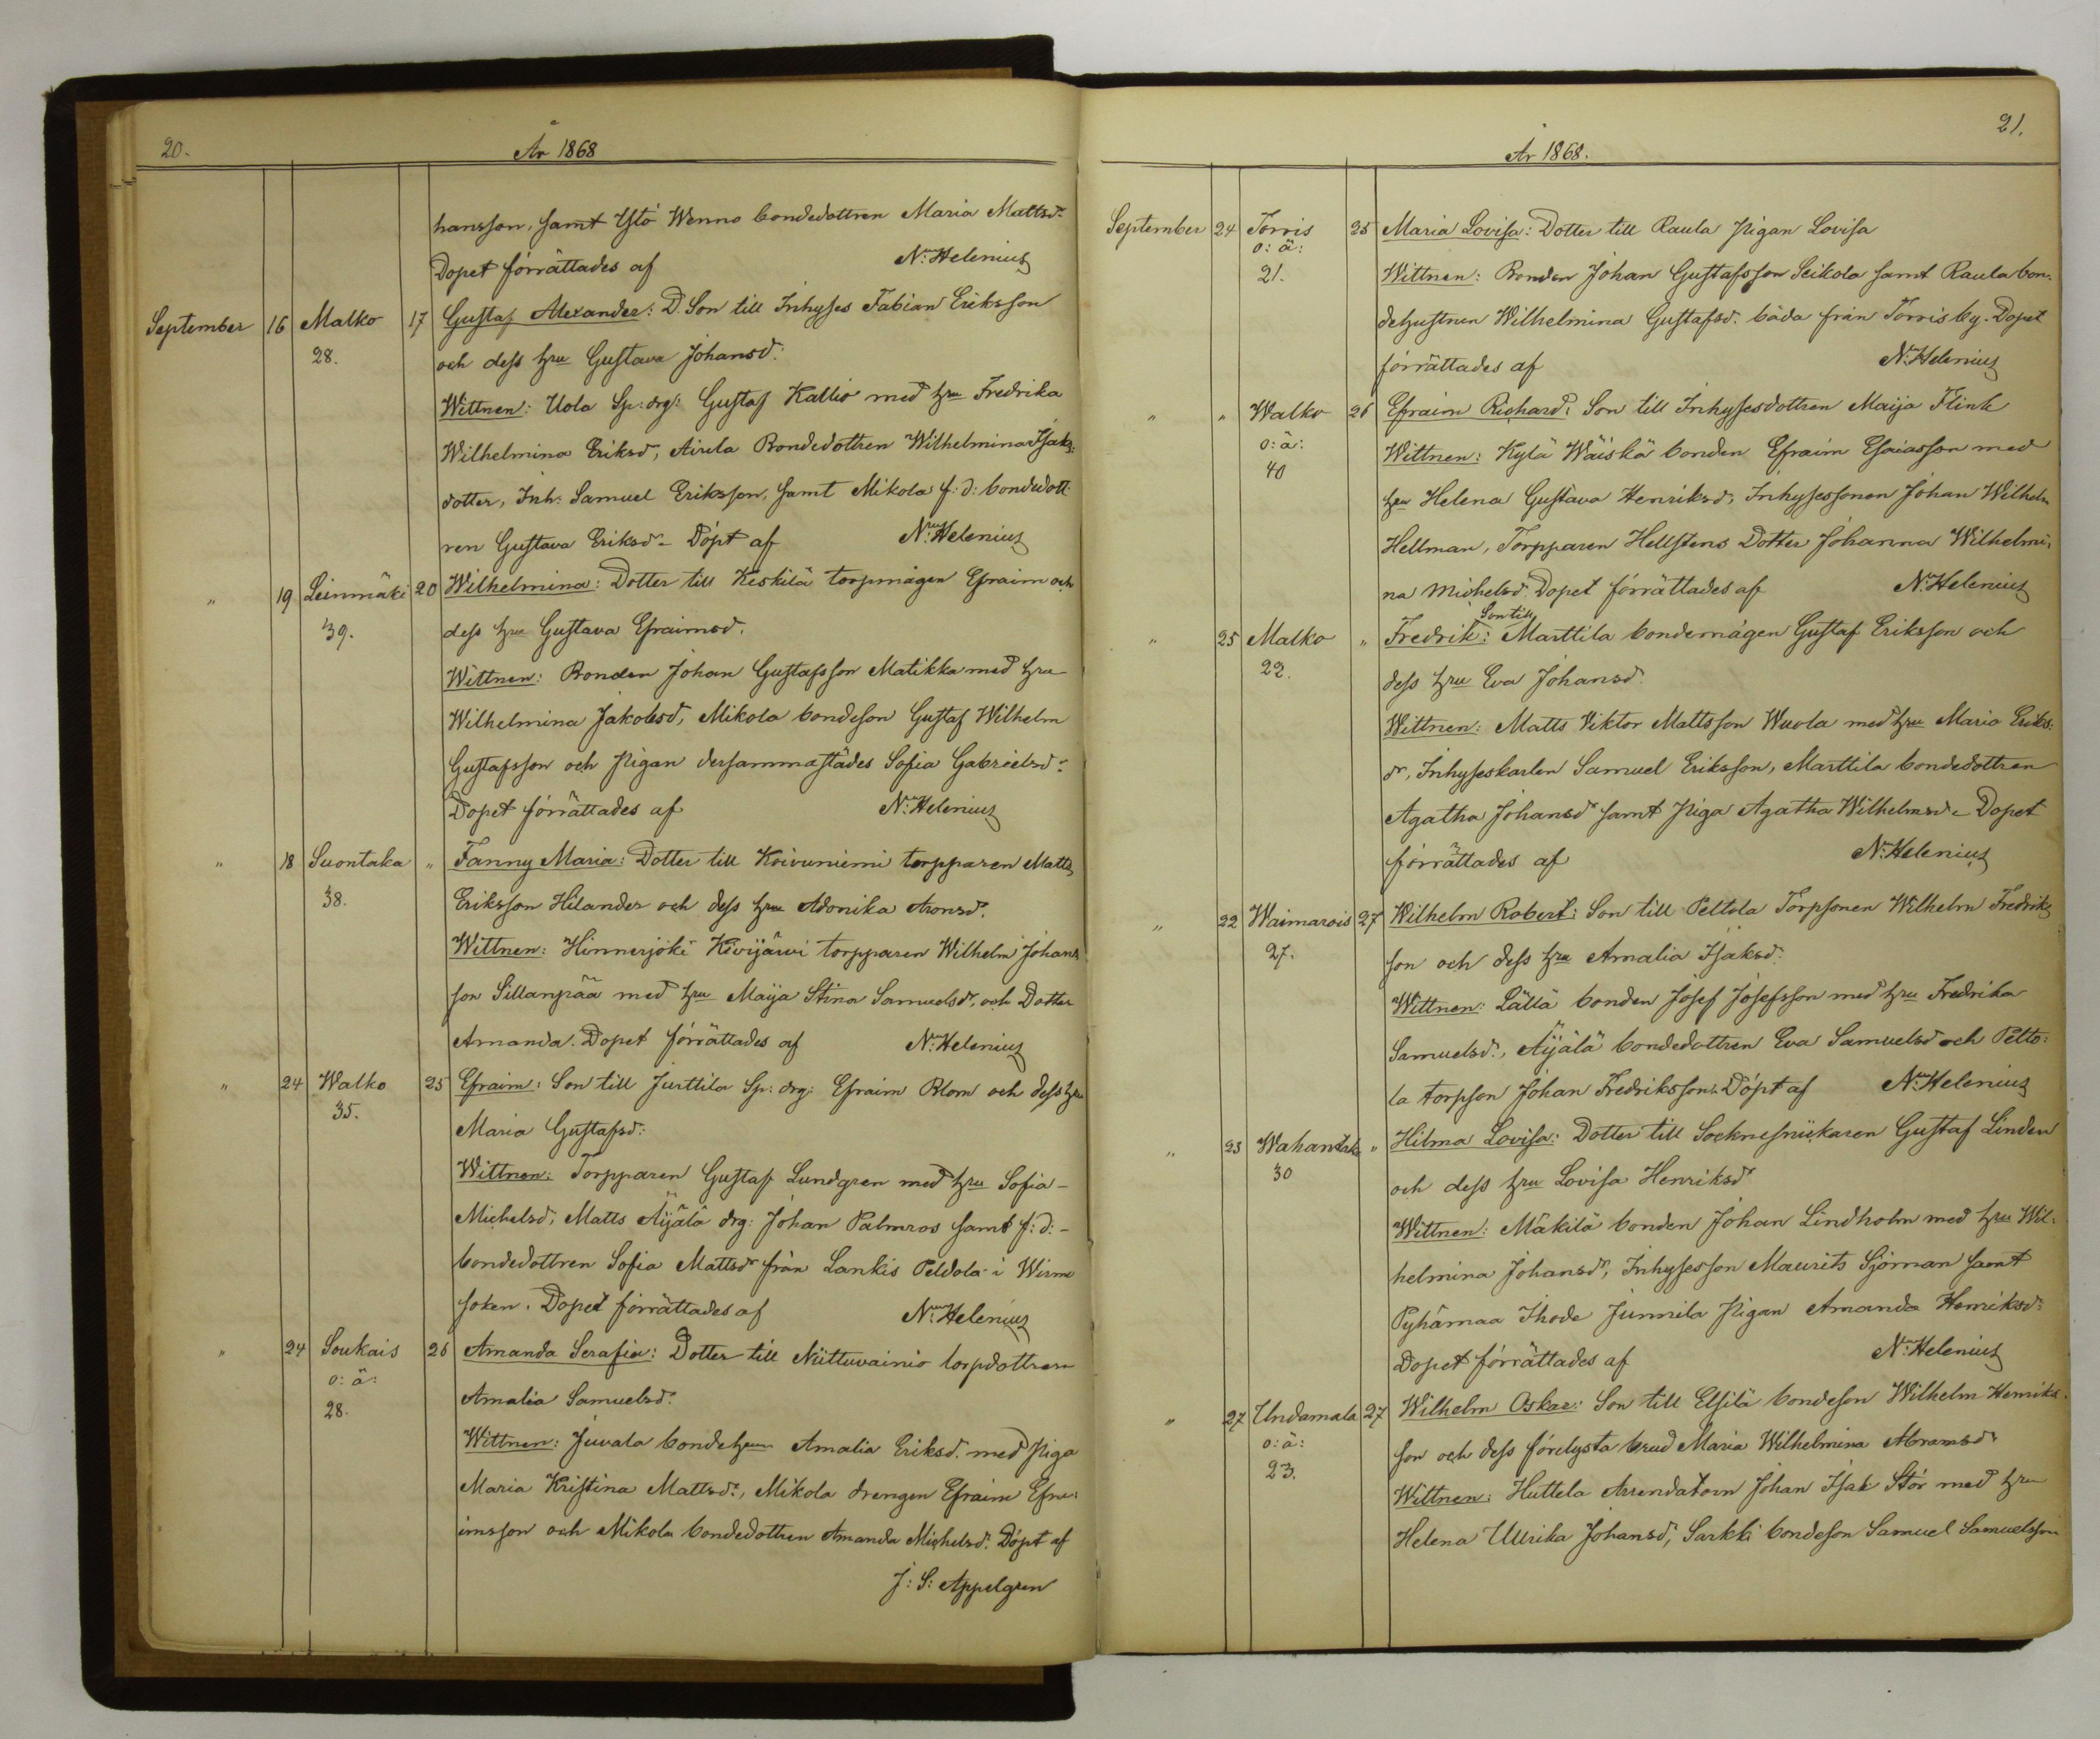 20.
År 1868
hansson, samt Ystö Wenno bondedottren Maria Mattsdr
Dopet förrättades af N. Helenius
September 16 Malko 17 Gustaf Alexander: D. Son till Inhyses Fabian Eriksson
28. och dess hru Gustava Johansd:
Wittnen: Uola Sp: drg: Gustaf Kallio med hru Fredrika
Wilhelmina Eriksd, Airila Bondedottren Wilhelmina Isaks
dotter, Inh. Samuel Eriksson, samt Mikola f: d: bondedott
ren Gustava Eriksdr Döpt af N. Helenius
" 19 Leinmäki 20 Wilhelmina: Dotter till Keskilä torpmågen Efraim och
39. dess hru Gustava Efraimsd.
Wittnen: Bonden Johan Gustafsson Matikka med hru
Wilhelmina Jakobsd, Mikola bondeson Gustaf Wilhelm
Gustafsson och Pigan dersammastädes Sofia Gabrielsd:
Dopet förrättades af N. Helenius
" 18 Suontaka " Fanny Maria: Dotter till Koivuniemi torpparen Matts
38. Eriksson Hilander och dess hru Adonika Aronsd.
Wittnen: Hinnerjoki Kivijärvi torpparen Wilhelm Johans
son Sillanpää med hru Maija Stina Samuelsd, och Dotter
Amanda. Dopet förrättades af N. Helenius
" 24 Walko 25 Efraim: Son till Jurttila Sp: drg: Efraim Blom och dess hru
35. Maria Gustafsd:
Wittnen: Torpparen Gustaf Lundgren med hru Sofia
Michelsd, Matts Äijälä drg: Johan Palmros samt f: d:
bondedottren Sofia Mattsdr från Lankis Peldola i Wirmo
soken. Dopet förrättades af N. Helenius
" 24 Soukais 26 Amanda Serafia: Dotter till Niittuvainio torpdottren
o: ä: Amalia Samuelsd:
28.
Wittnen: Juvala bondehrun Amalia Eriksd. med Piga
Maria Kristina Mattsd:, Mikola drengen Efraim Efra:
imsson och Mikola bondedottren Amanda Michelsd. Döpt af
J: S: Appelgren
21.
År 1868.
September 24 Torris 25 Maria Lovisa: Dotter till Raula Pigan Lovisa
o: ä:
21. Wittnen: Bonden Johan Gustafsson Seikola samt Raula bon-
dehustrun Wilhelmina Gustafsd. båda från Torris by. Dopet
förrättades af N. Helenius
" " Walko 26 Efraim Richard: Son till Inhysesdottren Maija Flink
o: ä: Wittnen: Kylä Wäiskä bonden Efraim Esaiasson med
40
hru Helena Gustava Henriksd, Inhysessonen Johan Wilhelm
Hellman, Torpparen Hellstens Dotter Johanna Wilhelmi-
na Michelsd. Dopet förrättades af N. Helenius
" 25 Malko " Fredrik: Son till Marttila bondemågen Gustaf Eriksson och
22. dess hru Eva Johansd.
Wittnen: Matts Viktor Mattsson Wuola med hru Maria Eriks:
dr, Inhyseskarlen Samuel Eriksson, Marttila bondedottren
Agatha Johansdr samt Piga Agatha Wilhelmsdr Dopet
förrättades af N. Helenius
" 22 Waimarois 27 Wilhelm Robert: Son till Peltola Torpsonen Wilhelm Fredriks
27. son och dess hru Amalia Isaksd:
Wittnen: Lällä bonden Josef Josefsson med hru Fredrika
Samuelsd:, Äijälä bondedottren Eva Samuelsd och Pelto:
la torpson Johan Fredriksson. Döpt af N. Helenius
" 23 Wahantaka " Hilma Lovisa: Dotter till Socknesnickaren Gustaf Linden
30 och dess hru Lovisa Henriksdr
Wittnen: Mäkilä bonden Johan Lindholm med hru Wil:
helmina Johansdr, Inhysesson Maurits Sjöman samt
Pyhämaa Ihode Junnila Pigan Amanda Henriksd:
Dopet förrättades af N. Helenius
" 27 Undamala 27 Wilhelm Oskar: Son till Elsilä bondeson Wilhelm Henriks
o: ä: son och dess förelysta brud Maria Wilhelmina Abramsd:
23.
Wittnen: Huttela Arrendatorn Johan Isak Stör med hru
Helena Ullrika Johansd, Sarkki bondeson Samuel Samuelsson